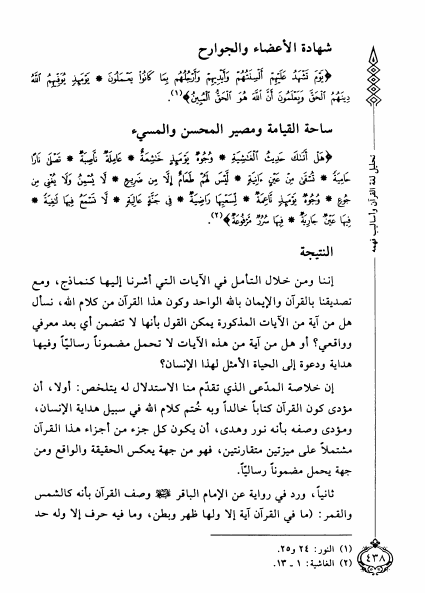 شهادة الأعضاء والجوارح
﴿يَوْمَ تَشْهَدُ عَلَيْهِمْ أَلْسِنَتُهُمْ وَأَيْدِيهِمْ وَأَرْجُلُهُم بِمَا كَانُوا يَعْمَلُونَ * يَوْمَئِذٍ يُوَفِّيهِمُ اللَّهُ
دِينَهُمُ الْحَقَّ وَيَعْلَمُونَ أَنَّ اللَّهَ هُوَ الْحَقُّ الْمُبِينُ﴾(١).
ساحة القيامة ومصير المحسن والمسيء
﴿هَلْ أَتَاكَ حَدِيثُ الْغَاشِيَةِ * وُجُوهٌ يَوْمَئِذٍ خَاشِعَةٌ * عَامِلَةٌ نَاصِبَةٌ * تَصْلَى نَارًا
حَامِيَةً * تُسْقَى مِنْ عَيْنٍ آنِيَةٍ * لَيْسَ لَهُمْ طَعَامٌ إِلَّا مِن ضَرِيعٍ * لَا يُسْمِنُ وَلَا يُغْنِي مِن
جُوعٍ * وُجُوهٌ يَوْمَئِذٍ نَاعِمَةٌ * لِسَعْيِهَا رَاضِيَةٌ * فِي جَنَّةٍ عَالِيَةٍ * لَا تَسْمَعُ فِيهَا لَاغِيَةً *
فِيهَا عَيْنٌ جَارِيَةٌ * فِيهَا سُرُرٌ مَرْفُوعَةٌ﴾(٢).
النتيجة
إننا ومن خلال التأمل في الآيات التي أشرنا إليها كنماذج، ومع
تصديقنا بالقرآن والإيمان بالله الواحد وكون هذا القرآن من كلام الله، نسأل
هل من آية من الآيات المذكورة يمكن القول بأنها لا تتضمن أي بعد معرفي
وواقعي؟ أو هل من آية من هذه الآيات لا تحمل مضموناً رسالياً وفيها
هداية ودعوة إلى الحياة الأمثل لهذا الإنسان؟
إن خلاصة المدّعى الذي تقدّم منا الاستدلال له يتلخص: أولا، أن
مؤدى كون القرآن كتاباً خالداً وبه خُتم كلام الله في سبيل هداية الإنسان،
ومؤدى وصفه بأنه نور وهدى، أن يكون كل جزء من أجزاء هذا القرآن
مشتملاً على ميزتين متقارنتين، فهو من جهة يعكس الحقيقة والواقع ومن
جهة يحمل مضموناً رسالياً.
ثانياً، ورد في رواية عن الإمام الباقر وصف القرآن بأنه كالشمس
والقمر: (ما في القرآن آية إلا ولها ظهر وبطن، وما فيه حرف إلا وله حد
(١) النور: ٢٤ و٢٥.
(٢) الغاشية: ١ ـ ١٣.
تحليل لغة القرآن وأساليب فهمه
٤٣٨